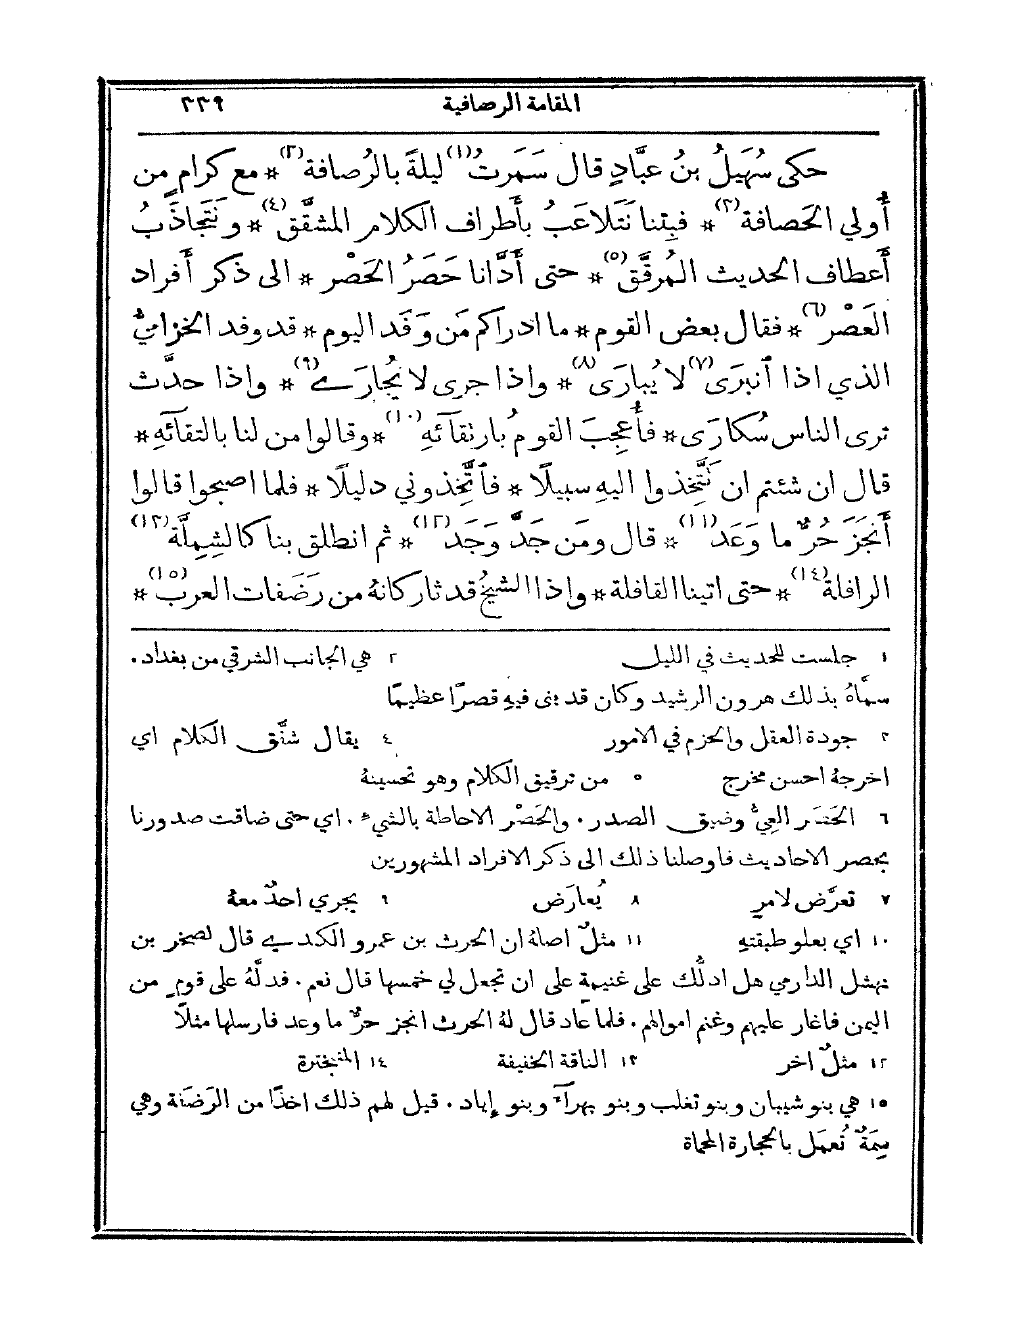 المقامة الرصافية ٣٣٩
حكى سُهَيلُ بنُ عبَّادٍ قال سَمَرتُ(١) ليلةً بالرُصافة(٢) * مع كرامٍ من
أُولي الحَصافة(٣) * فبِتْنا نَتَلاعَبُ بأَطراف الكلام المشقَّق(٤) * ونَتَجاذَبُ
أَعطاف الحديث المُرقَّق(٥) * حتى أَدَّانا حَصَرُ الحَصْر * الى ذكر أَفراد
العَصْر(٦) * فقال بعض القوم * ما ادراكم مَن وَفَد اليوم * قد وفد الخزاميُّ
الذي اذا ٱنبَرَى(٧) لا يُبارَى(٨) * واذا جرى لا يُجارَى(٩) * واذا حدَّث
ترى الناس سُكارَى * فأُعجِبَ القومُ بارتقآئهِ(١٠) * وقالوا من لنا بالتقآئهِ *
قال ان شئتم ان نتَّخذوا اليهِ سبيلًا * فٱتَّخذوني دليلًا * فلما اصبحوا قالوا
أَنجَزَ حُرٌّ ما وَعَد(١١) * قال ومَن جَدَّ وَجَد(١٢) * ثم انطلق بنا كالشِمِلَّة(١٣)
الرافلة(١٤) * حتى اتينا القافلة * واذا الشيخُ قد ثار كانهُ من رَضَفات العرب(١٥) *
١ جلست للحديث في الليل ٢ هي الجانب الشرقي من بغداد.
سمَّاهُ بذلك هرون الرشيد وكان قد بنى فيهِ قصرًا عظيمًا
٣ جودة العقل والحزم في الامور ٤ يقال شقَّق الكلام اي
اخرجهُ احسن مخرج ٥ من ترقيق الكلام وهو تحسينهُ
٦ الحَصَر العِيُّ وضيق الصدر. والحَصْر الاحاطة بالشيء. اي حتى ضاقت صدورنا
بحصر الاحاديث فاوصلنا ذلك الى ذكر الافراد المشهورين
٧ تعرَّض لامرٍ ٨ يُعارَض ٩ يجري احدٌ معهُ
١٠ اي بعلو طبقتهِ ١١ مثلٌ اصلهُ ان الحرث بن عمرو الكندي قال لصخر بن
نهشل الدارمي هل ادلُّك على غنيمة على ان تجعل لي خمسها قال نعم. فدلَّهُ على قومٍ من
اليمن فاغار عليهم وغنم اموالهم. فلما عاد قال لهُ الحرث انجز حرٌّ ما وعد فارسلها مثلًا
١٢ مثلٌ اخر ١٣ الناقة الخفيفة ١٤ المتبخترة
١٥ هي بنو شيبان وبنو تغلب وبنو بهرآء وبنو إياد. قيل لهم ذلك اخذًا من الرَضَفة وهي
سِمَةٌ تُعمَل بالحجارة المحماة